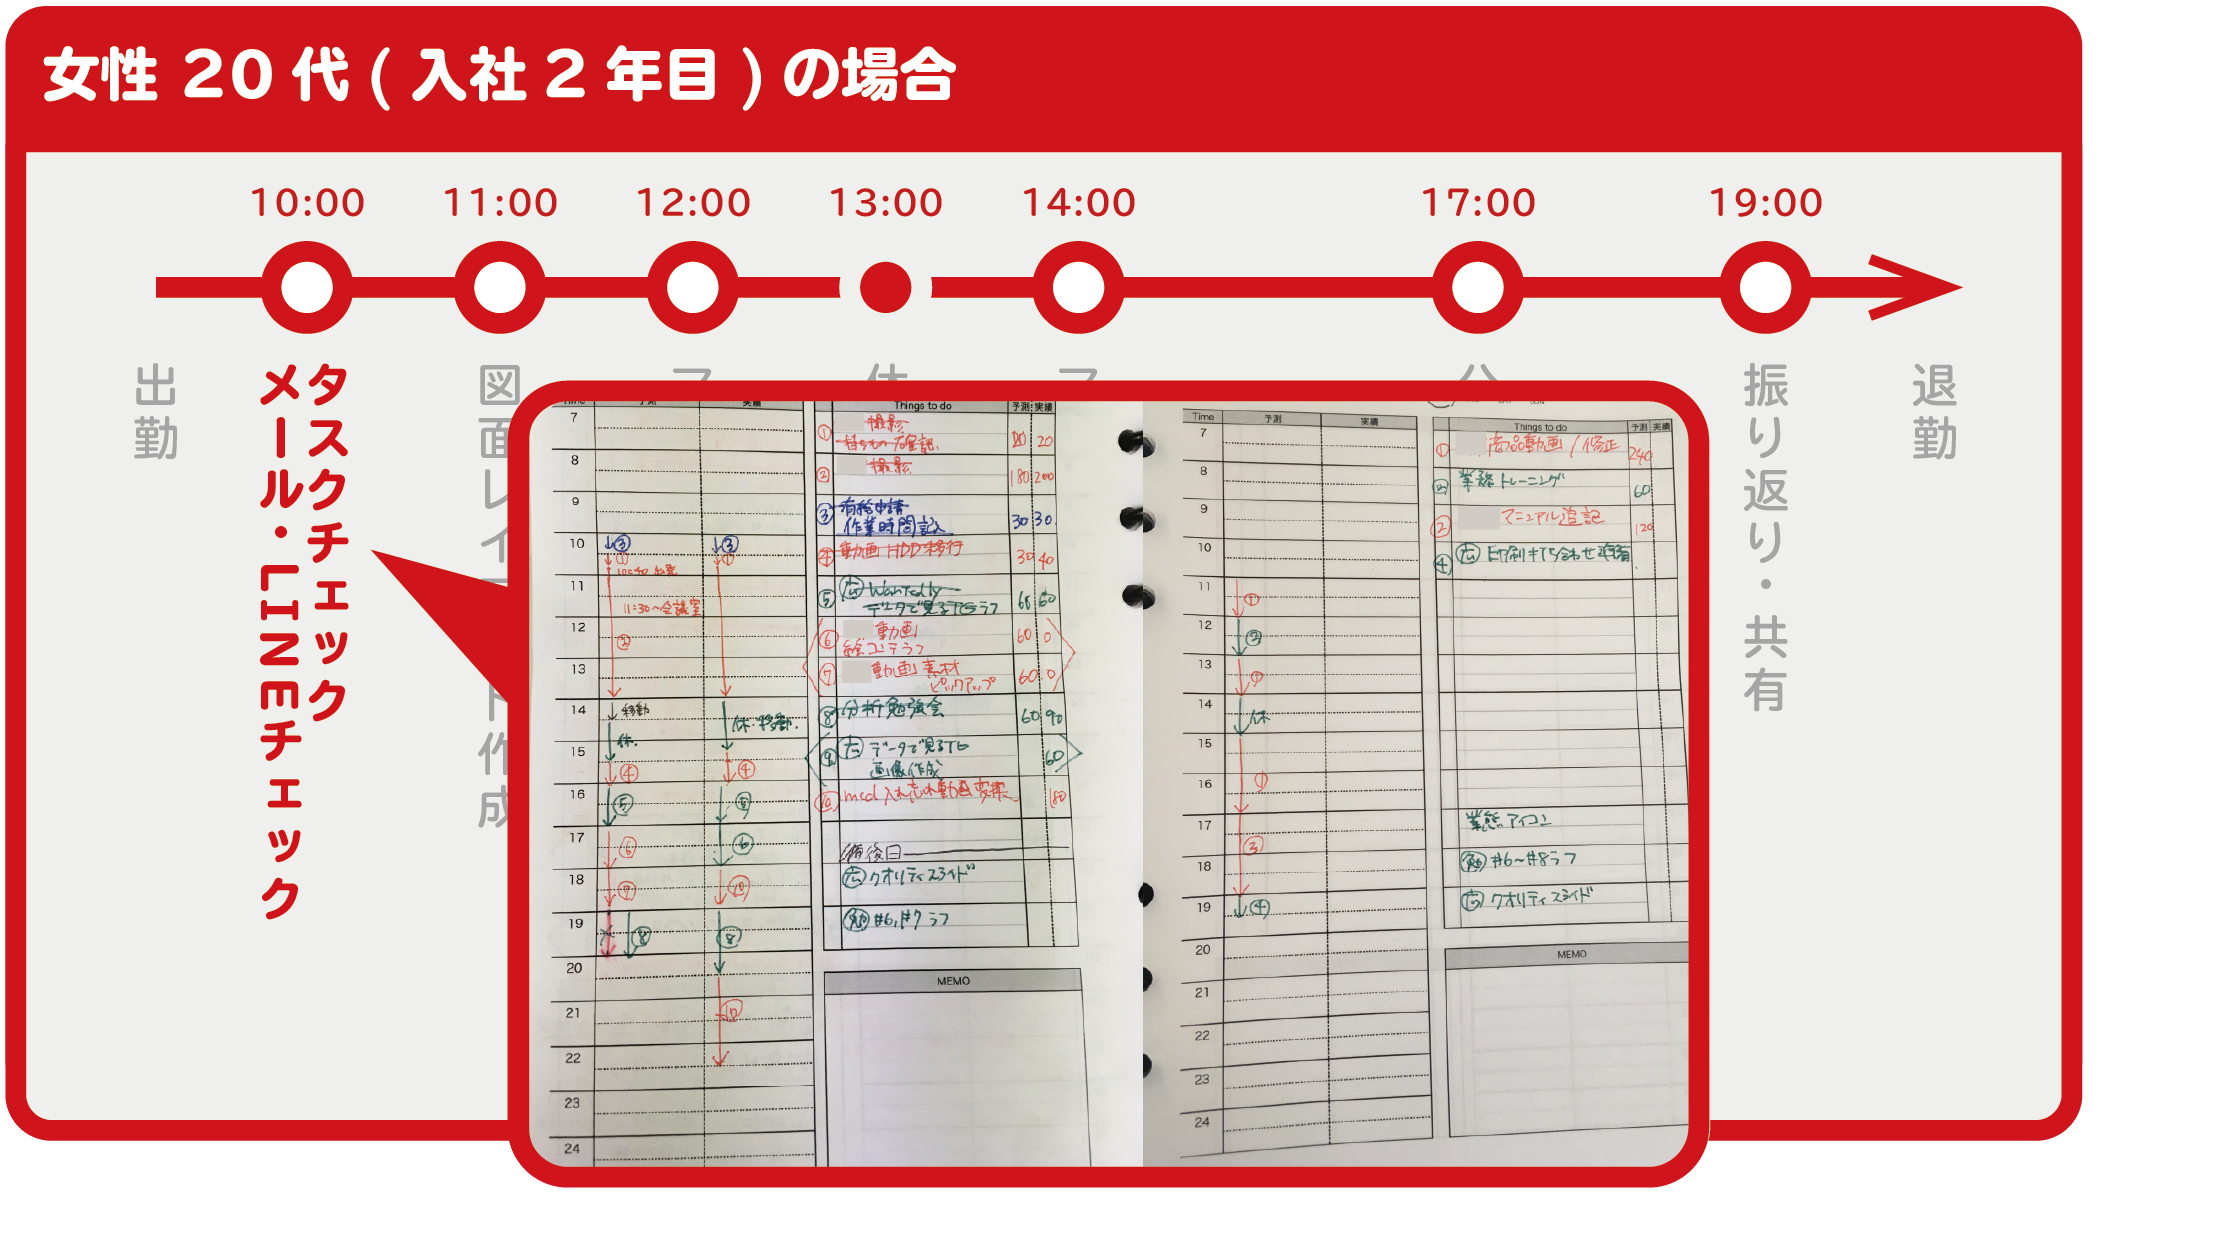 女性 20 代 ( 入社 2 年目 ) の場合
10:00 11:00 12:00 13:00 14:00 17:00 19:00
出勤
タスクチェック
メール・LINEチェック
図面レイ
ト作成
振り返り・共有
退勤
Time 予測 実績
7
8
9
10 ③ ③
① ①
11
11:30〜会議室
12 ②
13
14 移動 休・移動
15 休
④ ④
16 ⑤ ⑤
17 ⑥ ⑥
18 ⑦ ⑩
19 ⑧ ⑧
20
21 ⑩
22
23
24
Things to do 予測 実績
① 撮影
持ちもの確認 20
② 撮影 180 200
③ 有給申請
作業時間記入 30 30
④ 動画 HDD移行 30 40
⑤ 広 Wantedly
データで見るTGラフ 60
⑥ 動画
絵コンテラフ 60 0
⑦ 動画素材
ピックアップ 60 0
⑧ 分析勉強会 60 90
⑨ 広 データで見るTG
画像作成 60
⑩ mcd 入れ忘れ動画変案 180
広 クオリティスライド
勉 #6,#7 ラフ
MEMO
Time 予測 実績
7
8
9
10
11 ①
12 ②
13 ①
14 休
15
16 ①
17
③
18
19 ④
20
21
22
23
24
Things to do 予測 実績
① 商品動画 / 修正 240
② 業務トレーニング 60
マニュアル追記 120
④ 広 印刷打ち合わせ準備
業態アイコン
勉 #6〜#8ラフ
広 クオリティスライド
MEMO